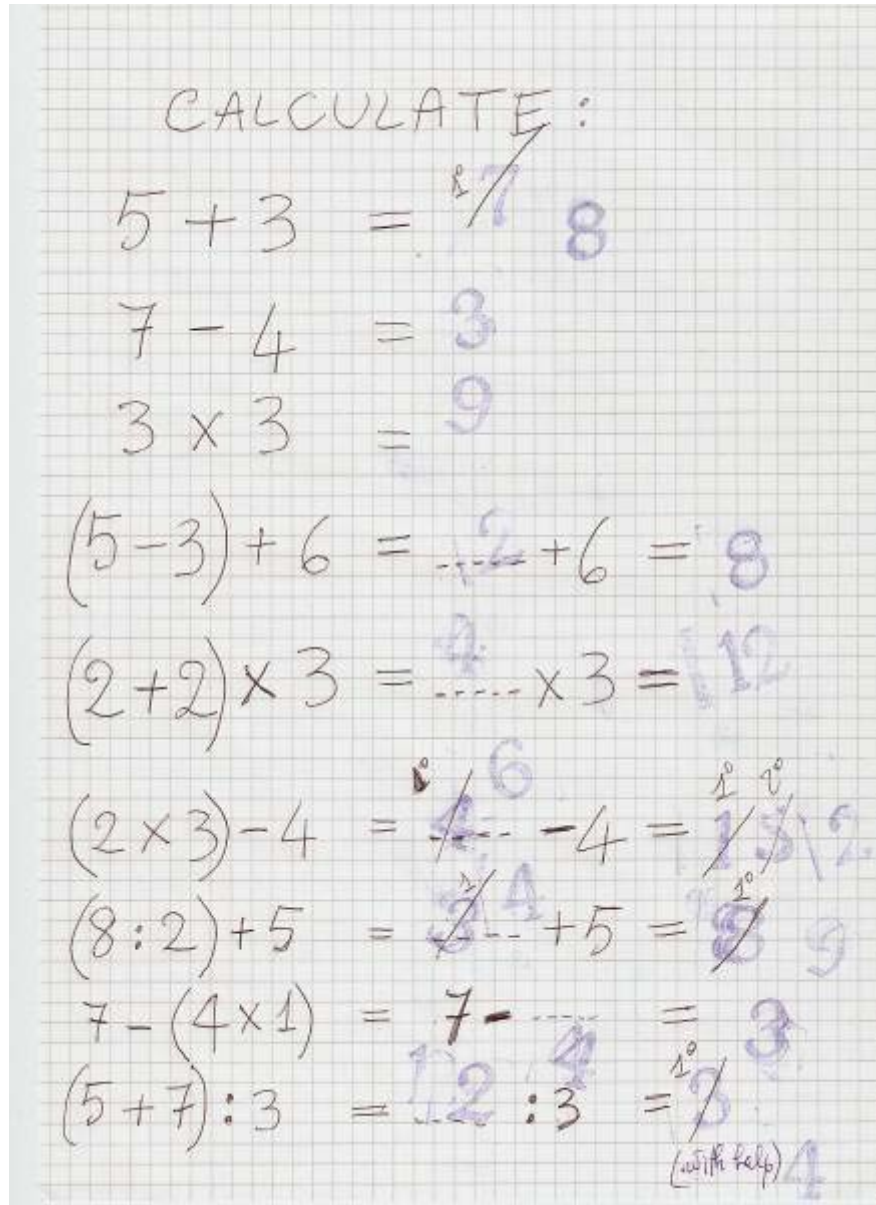 CALCULATE:
5 + 3 = 1° 7 8
7 - 4 = 3
3 x 3 = 9
(5-3) + 6 = 2 + 6 = 8
(2+2) x 3 = 4 x 3 = 12
(2x3) - 4 = 1° 4 6 - 4 = 1° 1 2° 3 2
(8:2) + 5 = 1 3 4 + 5 = 1° 8 9
7 - (4x1) = 7 - 4 = 3
(5+7) : 3 = 12 : 3 = 1° 3
(with help) 4